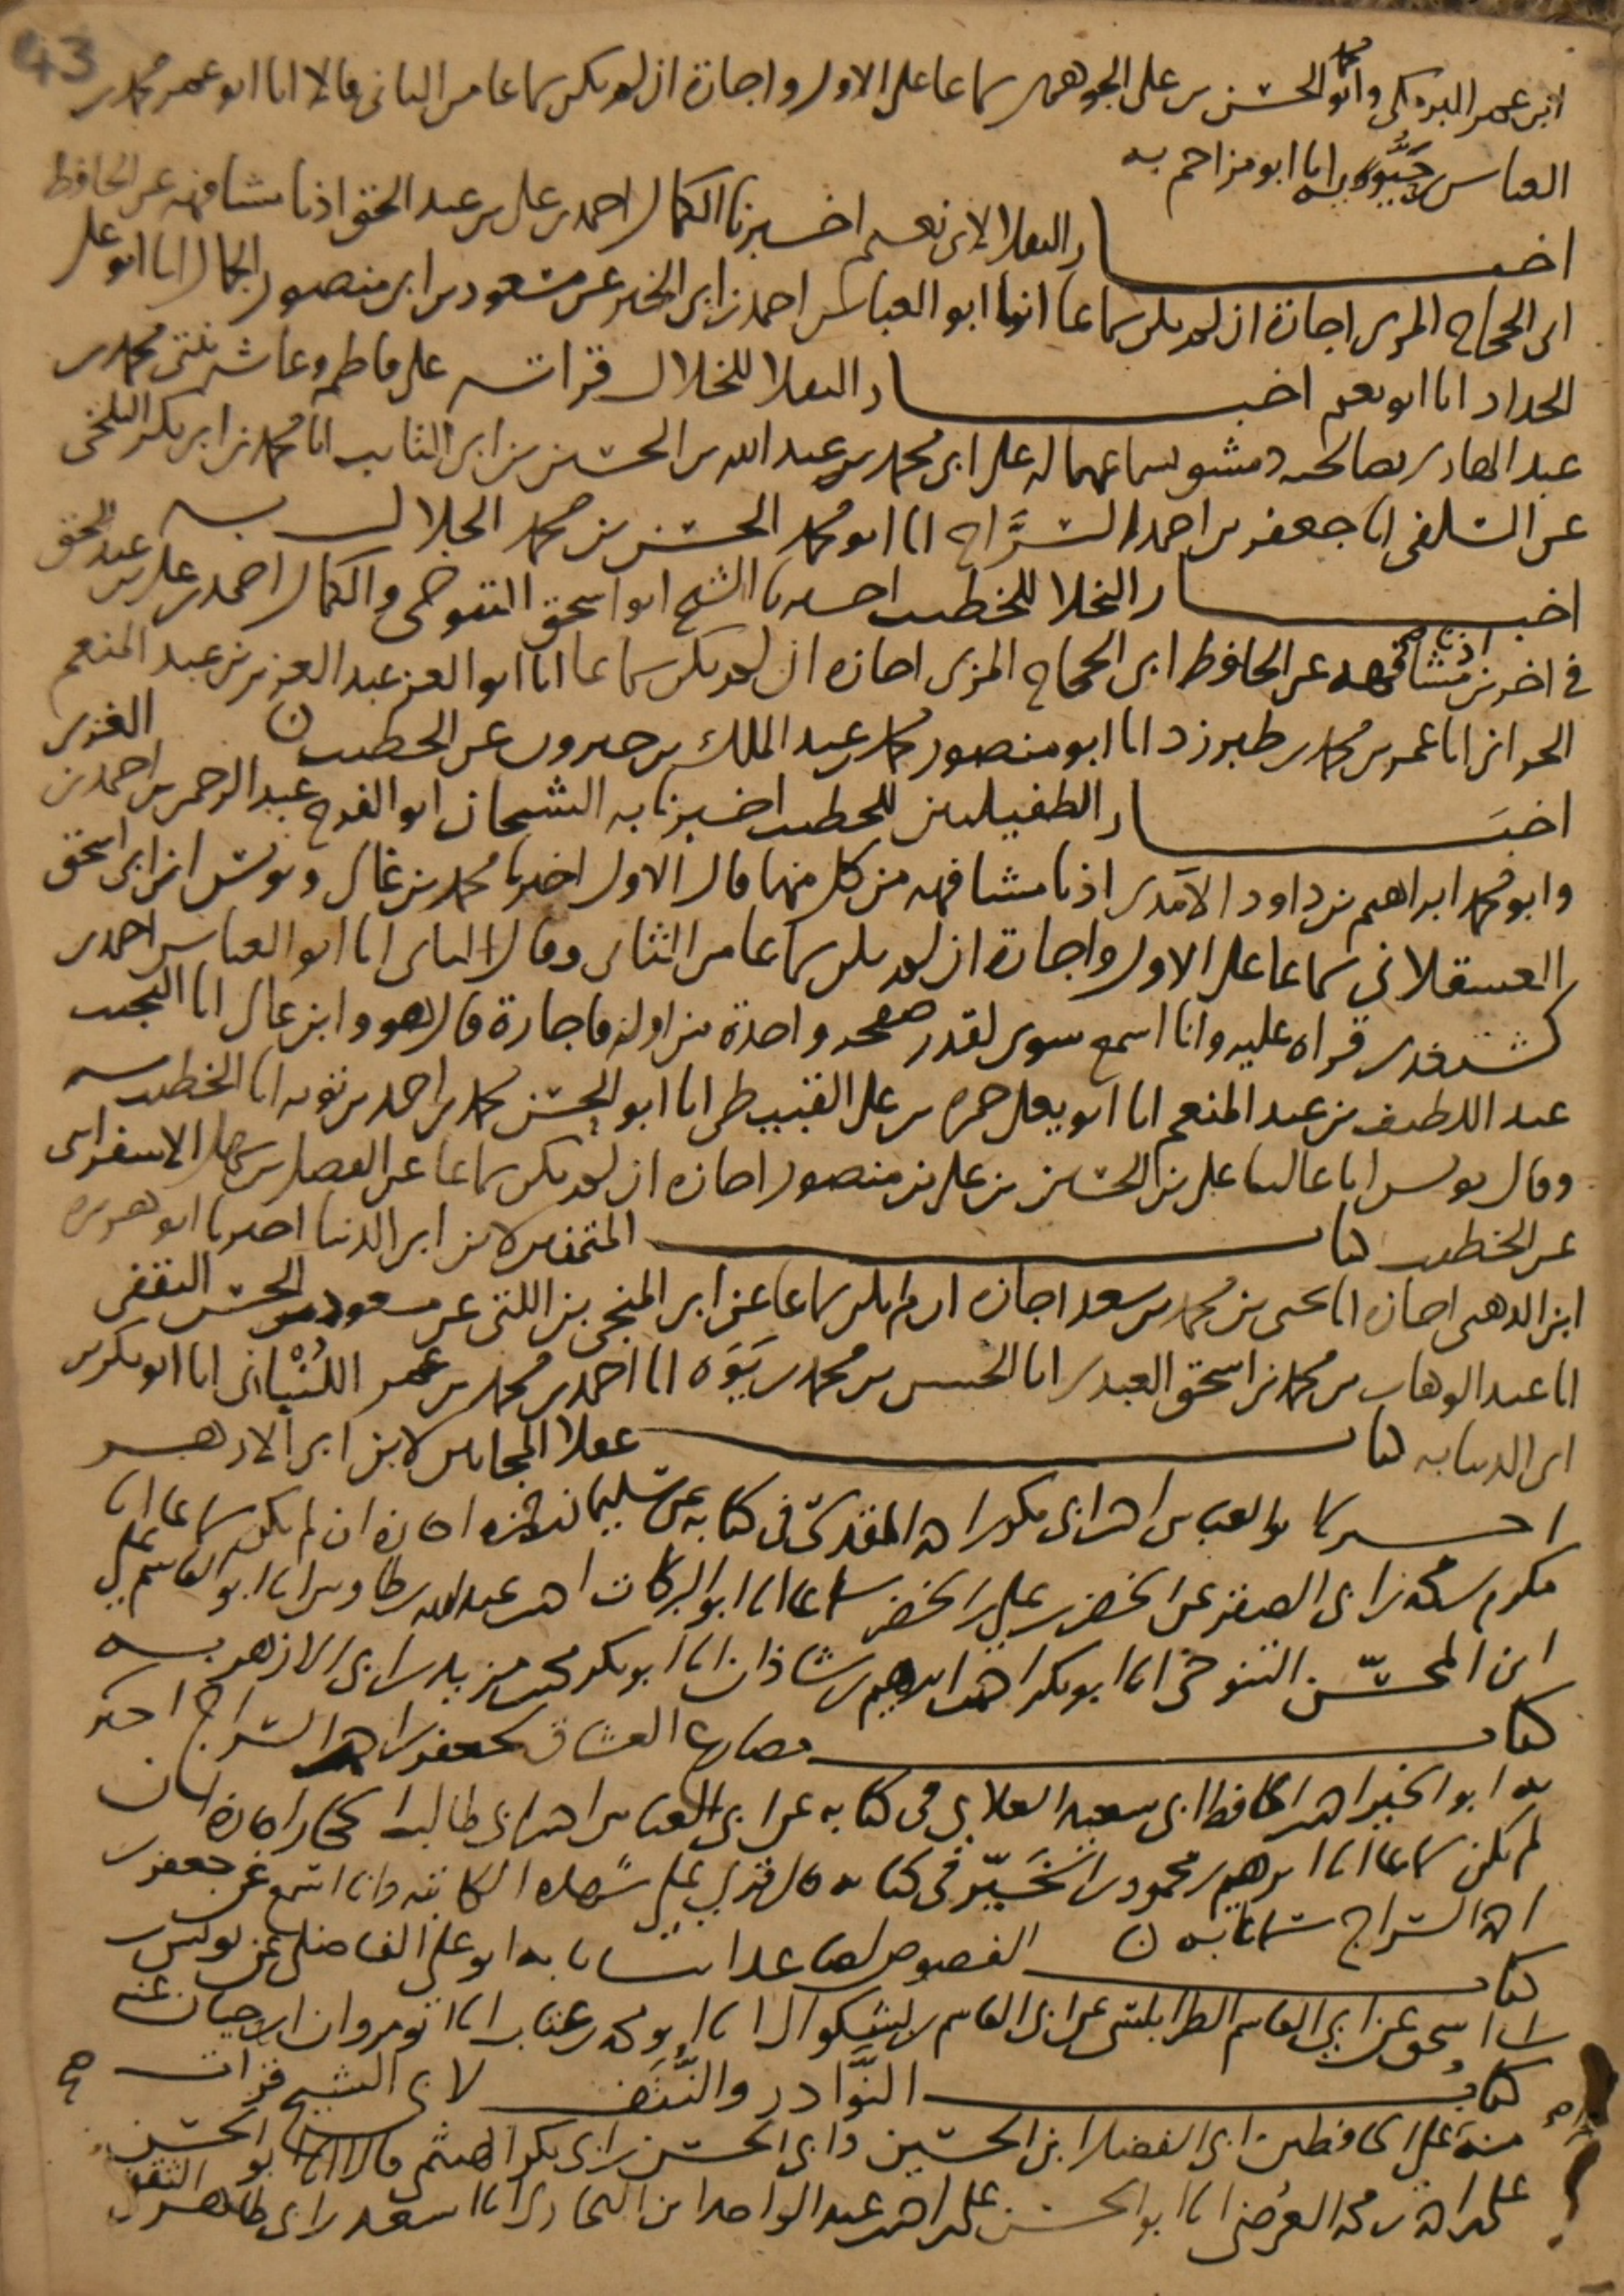 43
ابن عمر البرمكي وابو محمد الحسن بن علي الجوهري سماعا على الاول واجازة ان لم يكن سماعا من الثاني قالا انا ابو عمر محمد بن
العباس بن حيويه انا ابو مزاحم به
اخبار الثقلا لابي نعيم اخبرنا الكمال احمد بن علي بن عبد الحق اذنا مشافهة عن الحافظ
ابي الحجاج المزي اجازة ان لم يكن سماعا انبا ابو العباس احمد بن ابي الخير عن مسعود بن ابي منصور الجمال انا ابو علي
الحداد انا ابو نعيم اخبار الثقلا للخلال قراته على فاطمة وعائشة بنتي محمد بن
عبد الهادي بصالحية دمشق بسماعهما له على ابي محمد بن عبد الله بن الحسين بن ابي التائب انا محمد بن ابي بكر البلخي
عن السلفي انا جعفر بن احمد السراج انا ابو محمد الحسن بن محمد الخلال به
اخبار البخلا للخطيب اخبرنا الشيخ ابو اسحق التنوخي والكمال احمد بن علي بن عبد الحق
في اخرين اذنا مشافهة عن الحافظ ابي الحجاج المزي اجازه ان لم يكن سماعا انا ابو العز عبد العزيز بن عبد المنعم
الحراني انا عمر بن محمد بن طبرزد انا ابو منصور محمد بن عبد الملك بن خيرون عن الخطيب
اخبار الطفيليين للخطيب اخبرنا به الشيخان ابو الفرج عبد الرحمن بن احمد بن الغزي
وابو محمد ابراهيم بن داود الآمدي اذنا مشافهة من كل منهما قال الاول اخبرنا محمد بن غالي ويونس بن ابي اسحق
العسقلاني سماعا على الاول واجازة ان لم يكن سماعا من الثاني وقال الثاني انا ابو العباس احمد بن
كشتغدي قراه عليه وانا اسمع سوى لقدر صفحة واحدة من اوله فاجازة قال هو وابن غالي انا النجيب
عبد اللطيف بن عبد المنعم انا ابو يعلى حمزه بن علي القبيطي انا ابو الحسن محمد بن احمد بن توبه انا الخطيب به
وقال يونس انا عاليا علي بن الحسين بن علي بن منصور اجازه ان لم يكن سماعا عن الفضل بن سهل الاسفرايني
عن الخطيب كتاب المتمنين لابن ابي الدنيا اخبرنا ابو هريره
ابن الذهبي اجازه انا يحيى بن محمد بن سعد اجازه ان لم يكن سماعا عن ابي المنجي بن اللتي عن مسعود بن الحسن الثقفي
انا عبد الوهاب بن محمد بن اسحق العبدي انا الحسن بن محمد بن يوه انا احمد بن محمد بن عمر اللنباني انا ابو بكر بن
ابي الدنيا به كتاب عقلا المجانين لابن ابي الازهر
اخبرنا ابو العباس احمد بن ابي بكر بن احمد المقدسي في كتابه عن سليمان بن حمزه اجازة ان لم يكن سماعا انا
مكرم بن محمد بن ابي الصقر عن الخضر بن علي بن الخضر سماعا انا ابو البركات احمد بن عبد الله بن طاوس انا ابو القاسم علي
ابن المحسن التنوخي انا ابو بكر احمد بن ابرهيم بن شاذان انا ابو بكر محمد بن مزيد بن ابي الازهر به
كتاب مصارع العشاق لجعفر بن احمد السراج اخبرنا
به ابو الخير احمد بن الحافظ ابي سعيد العلاي في كتابه عن ابي العباس احمد بن ابي طالب الحجار اجازة ان
لم يكن سماعا انا ابرهيم بن محمود بن الخير في كتابه قال قري على شهده الكاتبه وانا اسمع عن جعفر بن
احمد السراج سماعا به
كتاب الفصوص لصاعد انبانا به ابو علي الفاضلي عن يونس بن
ابي اسحق عن ابي القاسم الطرابلسي عن ابي القاسم بن بشكوال انا ابو محمد بن عتاب انا ابو مروان بن حيان عنه
كتاب النوادر والنتف لابي الشيخ قرات
منه على الحافظين ابي الفضل بن الحسين وابي الحسن بن ابي بكر الهيثمي قالا انا ابو الحسن
علي بن احمد بن محمد العرضي انا ابو الحسن علي بن احمد بن عبد الواحد بن البخاري انا اسعد بن ابي طاهر الثقفي